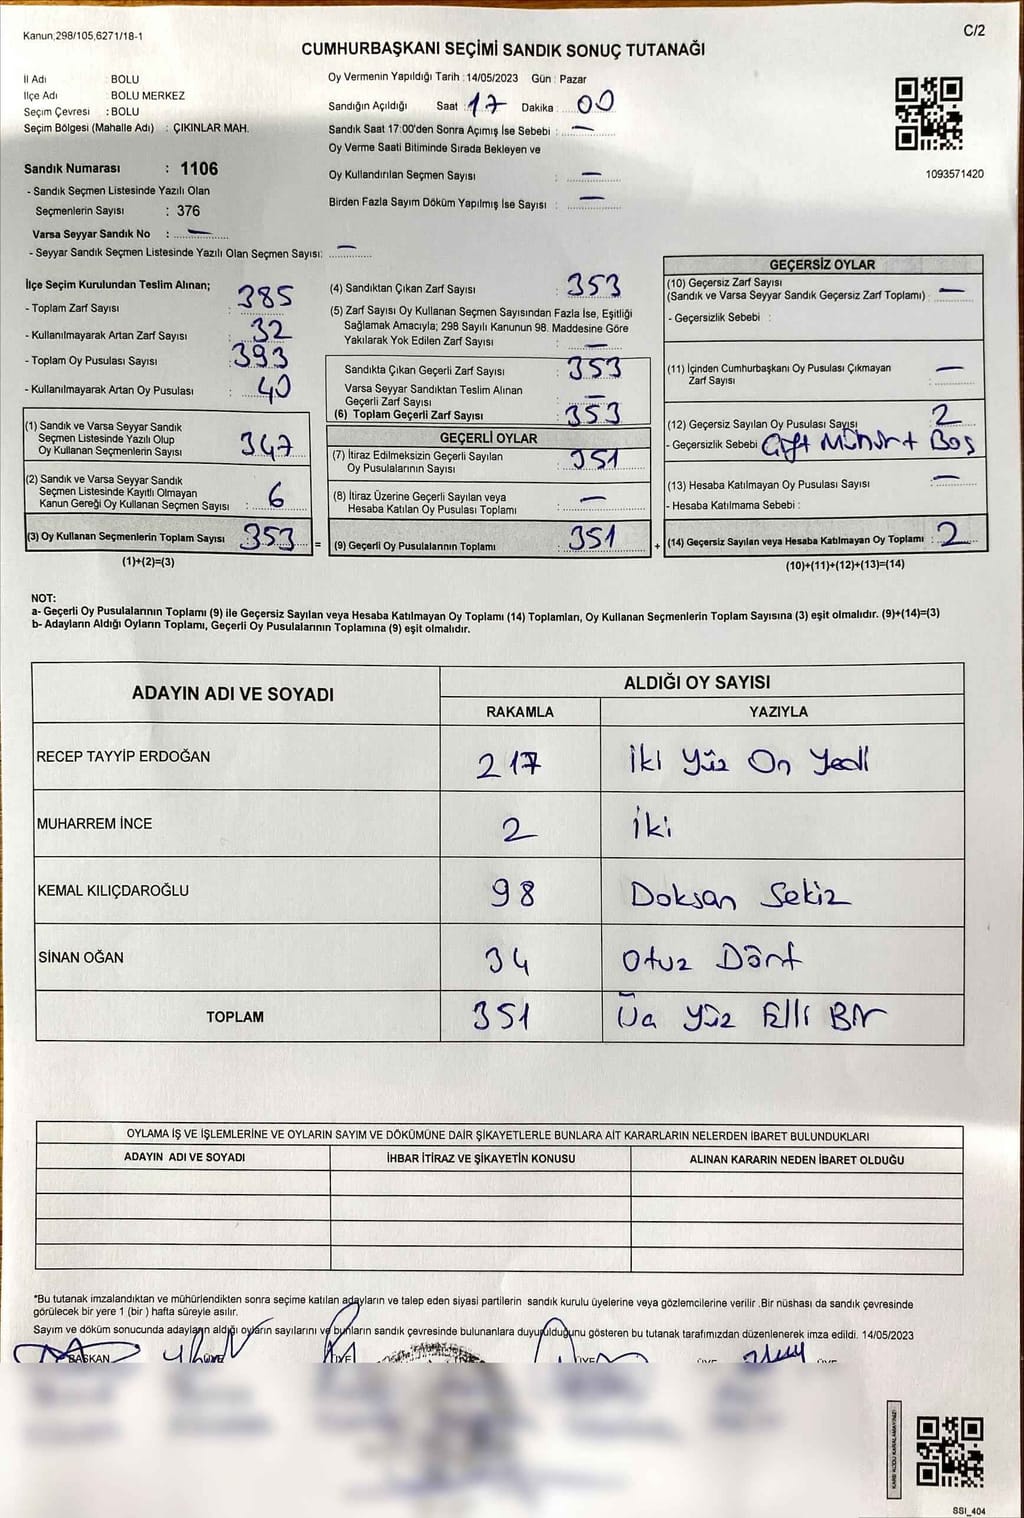 Kanun;298/105,6271/18-1
C/2
CUMHURBAŞKANI SEÇİMİ SANDIK SONUÇ TUTANAĞI
İl Adı : BOLU
İlçe Adı : BOLU MERKEZ
Seçim Çevresi : BOLU
Seçim Bölgesi (Mahalle Adı) : ÇIKINLAR MAH.
Sandık Numarası : 1106
- Sandık Seçmen Listesinde Yazılı Olan
Seçmenlerin Sayısı : 376
Varsa Seyyar Sandık No : —
- Seyyar Sandık Seçmen Listesinde Yazılı Olan Seçmen Sayısı: —
Oy Vermenin Yapıldığı Tarih : 14/05/2023 Gün : Pazar
Sandığın Açıldığı Saat : 17 Dakika : 00
Sandık Saat 17:00'den Sonra Açımış İse Sebebi : —
Oy Verme Saati Bitiminde Sırada Bekleyen ve
Oy Kullandırılan Seçmen Sayısı : —
Birden Fazla Sayım Döküm Yapılmış İse Sayısı : —
1093571420
İlçe Seçim Kurulundan Teslim Alınan;
- Toplam Zarf Sayısı : 385
- Kullanılmayarak Artan Zarf Sayısı : 32
- Toplam Oy Pusulası Sayısı : 393
- Kullanılmayarak Artan Oy Pusulası : 40
(1) Sandık ve Varsa Seyyar Sandık
Seçmen Listesinde Yazılı Olup
Oy Kullanan Seçmenlerin Sayısı : 347
(2) Sandık ve Varsa Seyyar Sandık
Seçmen Listesinde Kayıtlı Olmayan
Kanun Gereği Oy Kullanan Seçmen Sayısı : 6
(3) Oy Kullanan Seçmenlerin Toplam Sayısı : 353 =
(1)+(2)=(3)
(4) Sandıktan Çıkan Zarf Sayısı : 353
(5) Zarf Sayısı Oy Kullanan Seçmen Sayısından Fazla İse, Eşitliği
Sağlamak Amacıyla; 298 Sayılı Kanunun 98. Maddesine Göre
Yakılarak Yok Edilen Zarf Sayısı : —
Sandıkta Çıkan Geçerli Zarf Sayısı : 353
Varsa Seyyar Sandıktan Teslim Alınan
Geçerli Zarf Sayısı : —
(6) Toplam Geçerli Zarf Sayısı : 353
GEÇERLİ OYLAR
(7) İtiraz Edilmeksizin Geçerli Sayılan
Oy Pusulalarının Sayısı : 351
(8) İtiraz Üzerine Geçerli Sayılan veya
Hesaba Katılan Oy Pusulası Toplamı : —
(9) Geçerli Oy Pusulalarının Toplamı : 351 +
GEÇERSİZ OYLAR
(10) Geçersiz Zarf Sayısı
(Sandık ve Varsa Seyyar Sandık Geçersiz Zarf Toplamı) : —
- Geçersizlik Sebebi :
(11) İçinden Cumhurbaşkanı Oy Pusulası Çıkmayan
Zarf Sayısı : —
(12) Geçersiz Sayılan Oy Pusulası Sayısı : 2
- Geçersizlik Sebebi : Çift Mühür + Boş
(13) Hesaba Katılmayan Oy Pusulası Sayısı : —
- Hesaba Katılmama Sebebi :
(14) Geçersiz Sayılan veya Hesaba Katılmayan Oy Toplamı : 2
(10)+(11)+(12)+(13)=(14)
NOT:
a- Geçerli Oy Pusulalarının Toplamı (9) ile Geçersiz Sayılan veya Hesaba Katılmayan Oy Toplamı (14) Toplamları, Oy Kullanan Seçmenlerin Toplam Sayısına (3) eşit olmalıdır. (9)+(14)=(3)
b- Adayların Aldığı Oyların Toplamı, Geçerli Oy Pusulalarının Toplamına (9) eşit olmalıdır.
ADAYIN ADI VE SOYADI ALDIĞI OY SAYISI
RAKAMLA YAZIYLA
RECEP TAYYİP ERDOĞAN 217 İki Yüz On Yedi
MUHARREM İNCE 2 İki
KEMAL KILIÇDAROĞLU 98 Doksan Sekiz
SİNAN OĞAN 34 Otuz Dört
TOPLAM 351 Üç Yüz Elli Bir
OYLAMA İŞ VE İŞLEMLERİNE VE OYLARIN SAYIM VE DÖKÜMÜNE DAİR ŞİKAYETLERLE BUNLARA AİT KARARLARIN NELERDEN İBARET BULUNDUKLARI
ADAYIN ADI VE SOYADI İHBAR İTİRAZ VE ŞİKAYETİN KONUSU ALINAN KARARIN NEDEN İBARET OLDUĞU
*Bu tutanak imzalandıktan ve mühürlendikten sonra seçime katılan adayların ve talep eden siyasi partilerin sandık kurulu üyelerine veya gözlemcilerine verilir .Bir nüshası da sandık çevresinde
görülecek bir yere 1 (bir ) hafta süreyle asılır.
Sayım ve döküm sonucunda adayların aldığı oyların sayılarını ve bunların sandık çevresinde bulunanlara duyurulduğunu gösteren bu tutanak tarafımızdan düzenlenerek imza edildi. 14/05/2023
BAŞKAN ÜYE ÜYE ÜYE ÜYE ÜYE
SSI_404